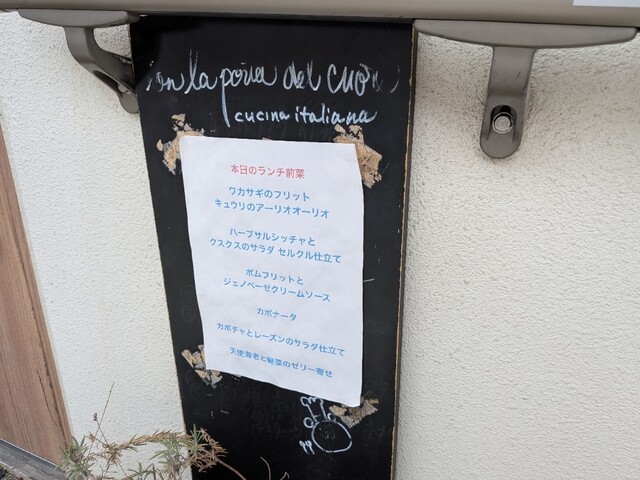 la del
cucina italiana
本日のランチ前菜
ワカサギのフリット
キュウリのアーリオオーリオ
ハーブサルシッチャと
クスクスのサラダ セルクル仕立て
ポムフリットと
ジェノベーゼクリームソース
カポナータ
カボチャとレーズンのサラダ仕立て
天使海老と野菜のゼリー寄せ